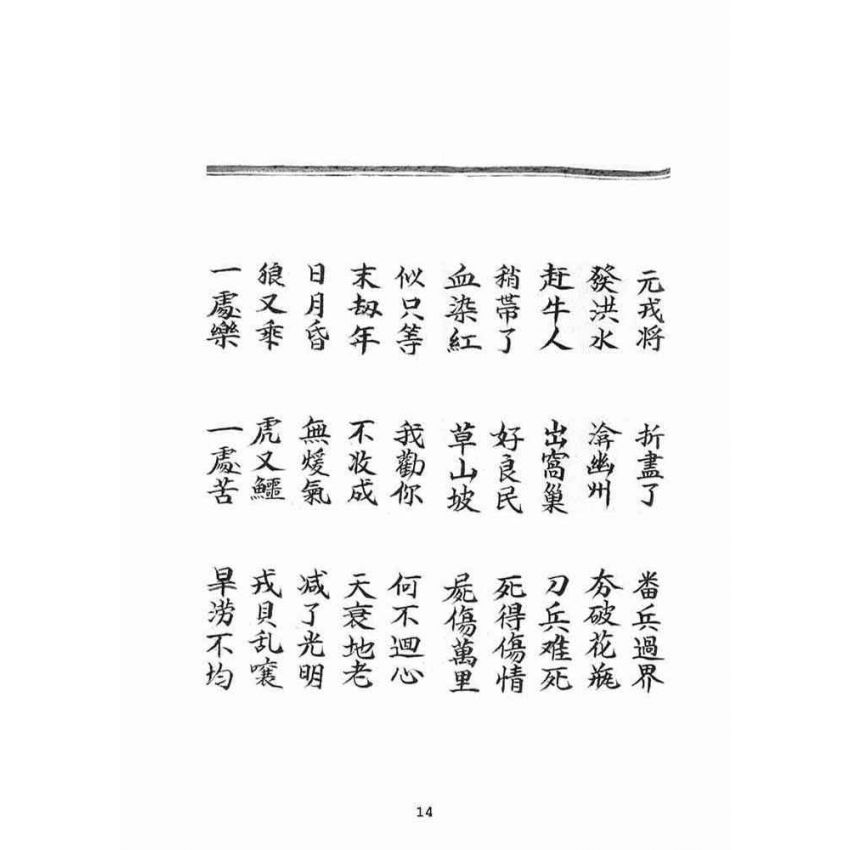 元戎将 折盡了 番兵過界
發洪水 渰幽州 夯破花瓶
赶牛人 出窩巢 刀兵难死
稍帶了 好良民 死得傷情
血染紅 草山坡 屍傷萬里
似只等 我勸你 何不迴心
末劫年 不收成 天衰地老
日月昏 無煖氣 减了光明
狼又乘 虎又鱷 戎貝乱嚷
一處樂 一處苦 旱澇不均
14